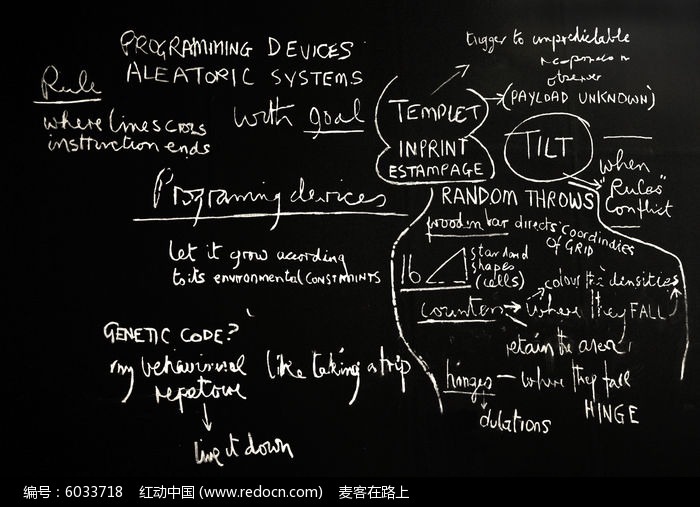 PROGRAMMING DEVICES
ALEATORIC SYSTEMS
Rule
where lines cross
insttruction ends
with goal
Programing devices
let it grow according
to its environmental CONSTRAINTS
GENETIC CODE?
my behaviural
repatoire
like taking a trip
live it down
trigger to unpredictable
responses in
observer
(PAYLOAD UNKNOWN)
TEMPLET
INPRINT
ESTAMPAGE
TILT
when
"Rules"
Conflict
RANDOM THROWS
wooden bar directs coordinates
OF GRID
16
standard
shapes
(cells)
colour densities
counters where they FALL
retain the area
hinges — where they fall
HINGE
dulations
编号：6033718 红动中国 (www.redocn.com) 麦客在路上